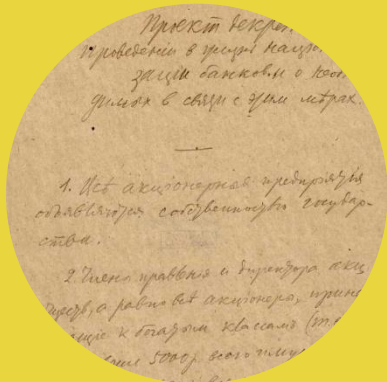 Проект декрет
проведении в жизнь национ
зации банков и о необ
димых в связи с этим мѣрах.
1. Всѣ акционерные предприятия
объявляются собственностью государ-
ства.
2. Члены правления и директора акц
обществ, а равно всѣ акционеры, прина
ащие к богатым классам (т.е.
5000 р. всего имущ